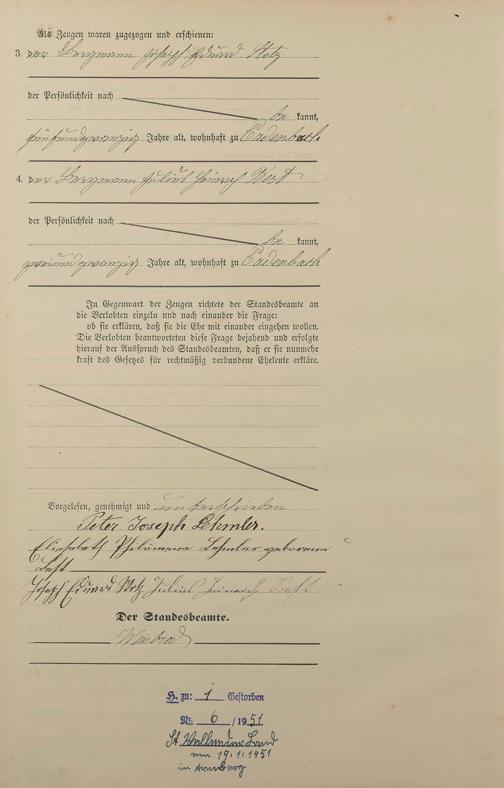 Als Zeugen waren zugezogen und erschienen:
3. der Bergmann Joseph Eduard Stotz
der Persönlichkeit nach
be kannt,
fünfundzwanzig Jahre alt, wohnhaft zu Cadenbach
4. der Bergmann Julius Heinrich Best
der Persönlichkeit nach
be kannt,
zweiundzwanzig Jahre alt, wohnhaft zu Cadenbach
In Gegenwart der Zeugen richtete der Standesbeamte an
die Verlobten einzeln und nach einander die Frage:
ob sie erklären, daß sie die Ehe mit einander eingehen wollen.
Die Verlobten beantworteten diese Frage bejahend und erfolgte
hierauf der Ausspruch des Standesbeamten, daß er sie nunmehr
kraft des Gesetzes für rechtmäßig verbundene Eheleute erkläre.
Vorgelesen, genehmigt und unterschrieben
Peter Joseph Lehmler.
Elisabeth Philomena Lehmler geborenen
Best
Joseph Eduard Stotz Julius Heinrich Best
Der Standesbeamte.
H. zu: 1 Gestorben
Nr. 6 / 1951
St
am 19.1.1951
in